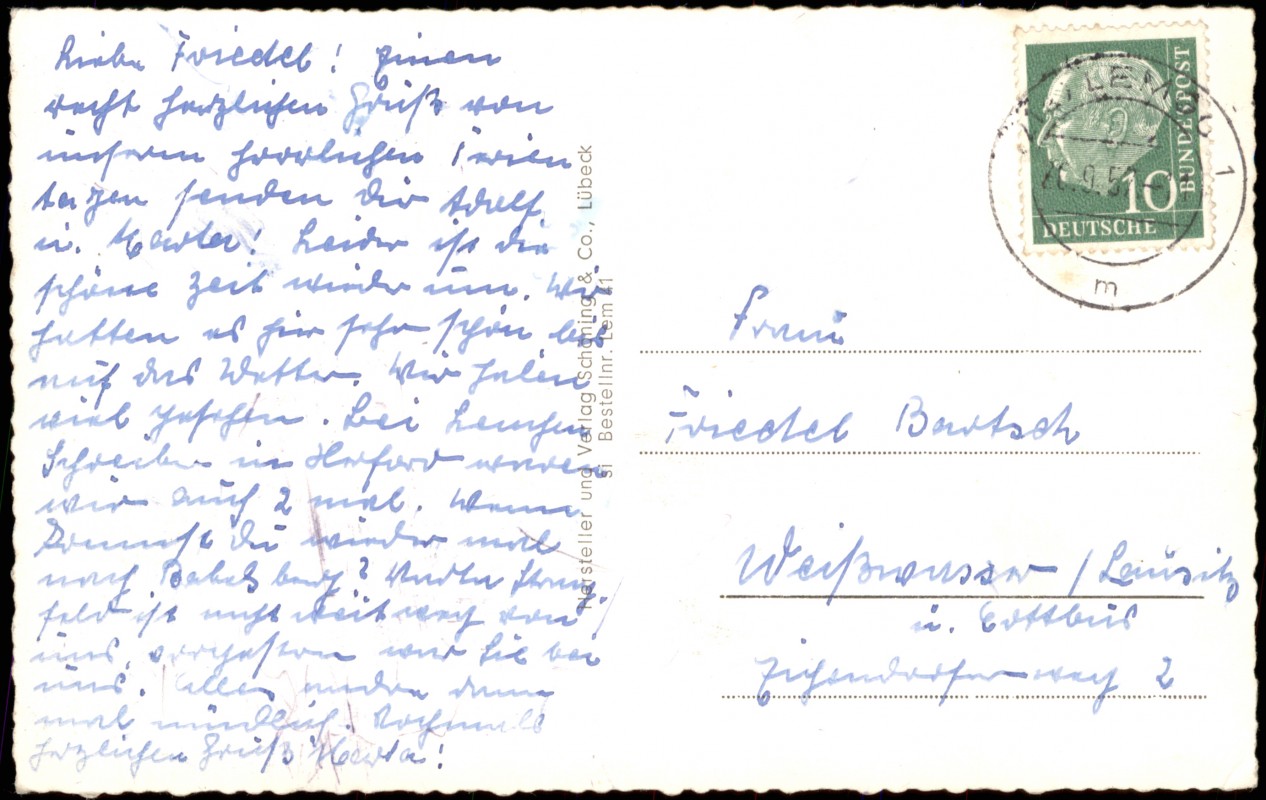 Liebe Friedel! Einen
recht herzlichen Gruß von
unseren herrlichen Ferien
tagen senden dir Adolf
u. Marta! Leider ist die
schöne Zeit wieder um. Wir
hatten es hier sehr schön bis
auf das Wetter. Wir haben
viel gesehen. Bei Lenchen
Schreiber in Herford waren
wir auch 2 mal. Wann
kommst du wieder mal
nach Babelsberg?
feld ist nicht weit weg von
uns, vorgestern war sie bei
uns. Alles andre dann
mal mündlich. Nochmals
herzlichen Gruß Marta!
Hersteller und Verlag Schöning & Co., Lübeck
si Bestellnr. Lem 41
DEUTSCHE
BUNDESPOST
10
LEMGO 1
m
Frau
Friedel Bartsch
Weißwasser / Lausitz
ü. Cottbus
Eichendorfweg 2